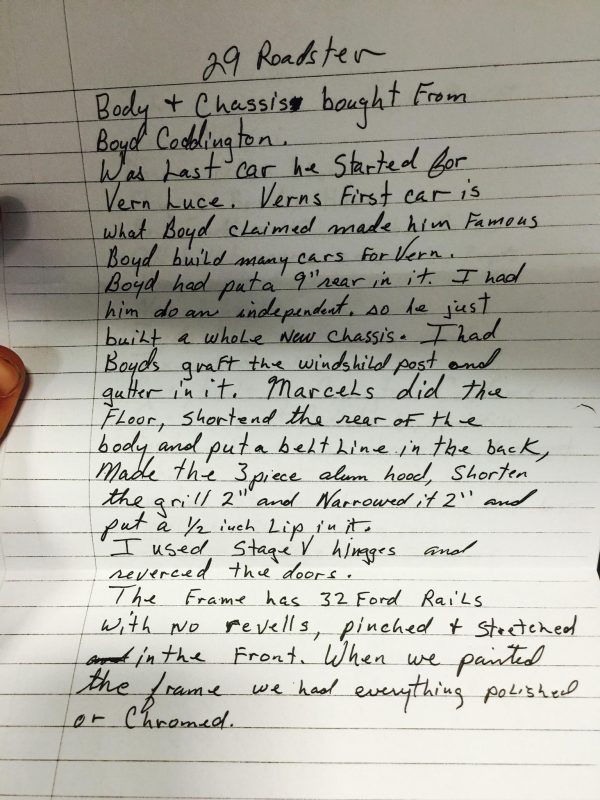 29 Roadster
Body + Chassis bought From
Boyd Coddington.
Was Last car he Started for
Vern Luce. Verns First car is
what Boyd claimed made him Famous
Boyd build many cars For Vern.
Boyd had put a 9" rear in it. I had
him do an independent. so he just
built a whole New chassis. I had
Boyds graft the windshild post and
gutter in it. Marcels did the
Floor, shortend the rear of the
body and put a belt Line in the back,
Made the 3 piece alum hood, Shorten
the grill 2" and Narrowed it 2" and
put a 1/2 inch Lip in it.
I used Stage V hingges and
reverced the doors.
The Frame has 32 Ford Rails
with No revells, pinched + Stretched
in the Front. When we painted
the frame we had everything polished
or Chromed.